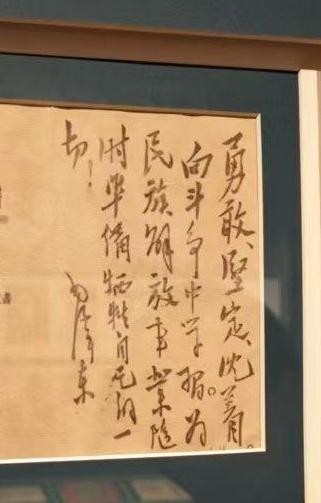 勇敢、坚定、沈着。
向斗争中学习。为
民族解放事业随
时准备牺牲自己的一
切！
毛泽东